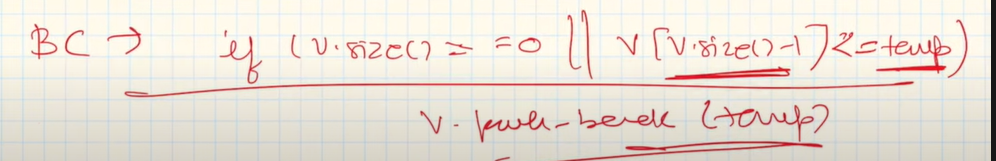 BC → if (v.size() == 0 || v[v.size()-1] <= temp)
v.push-back (temp)